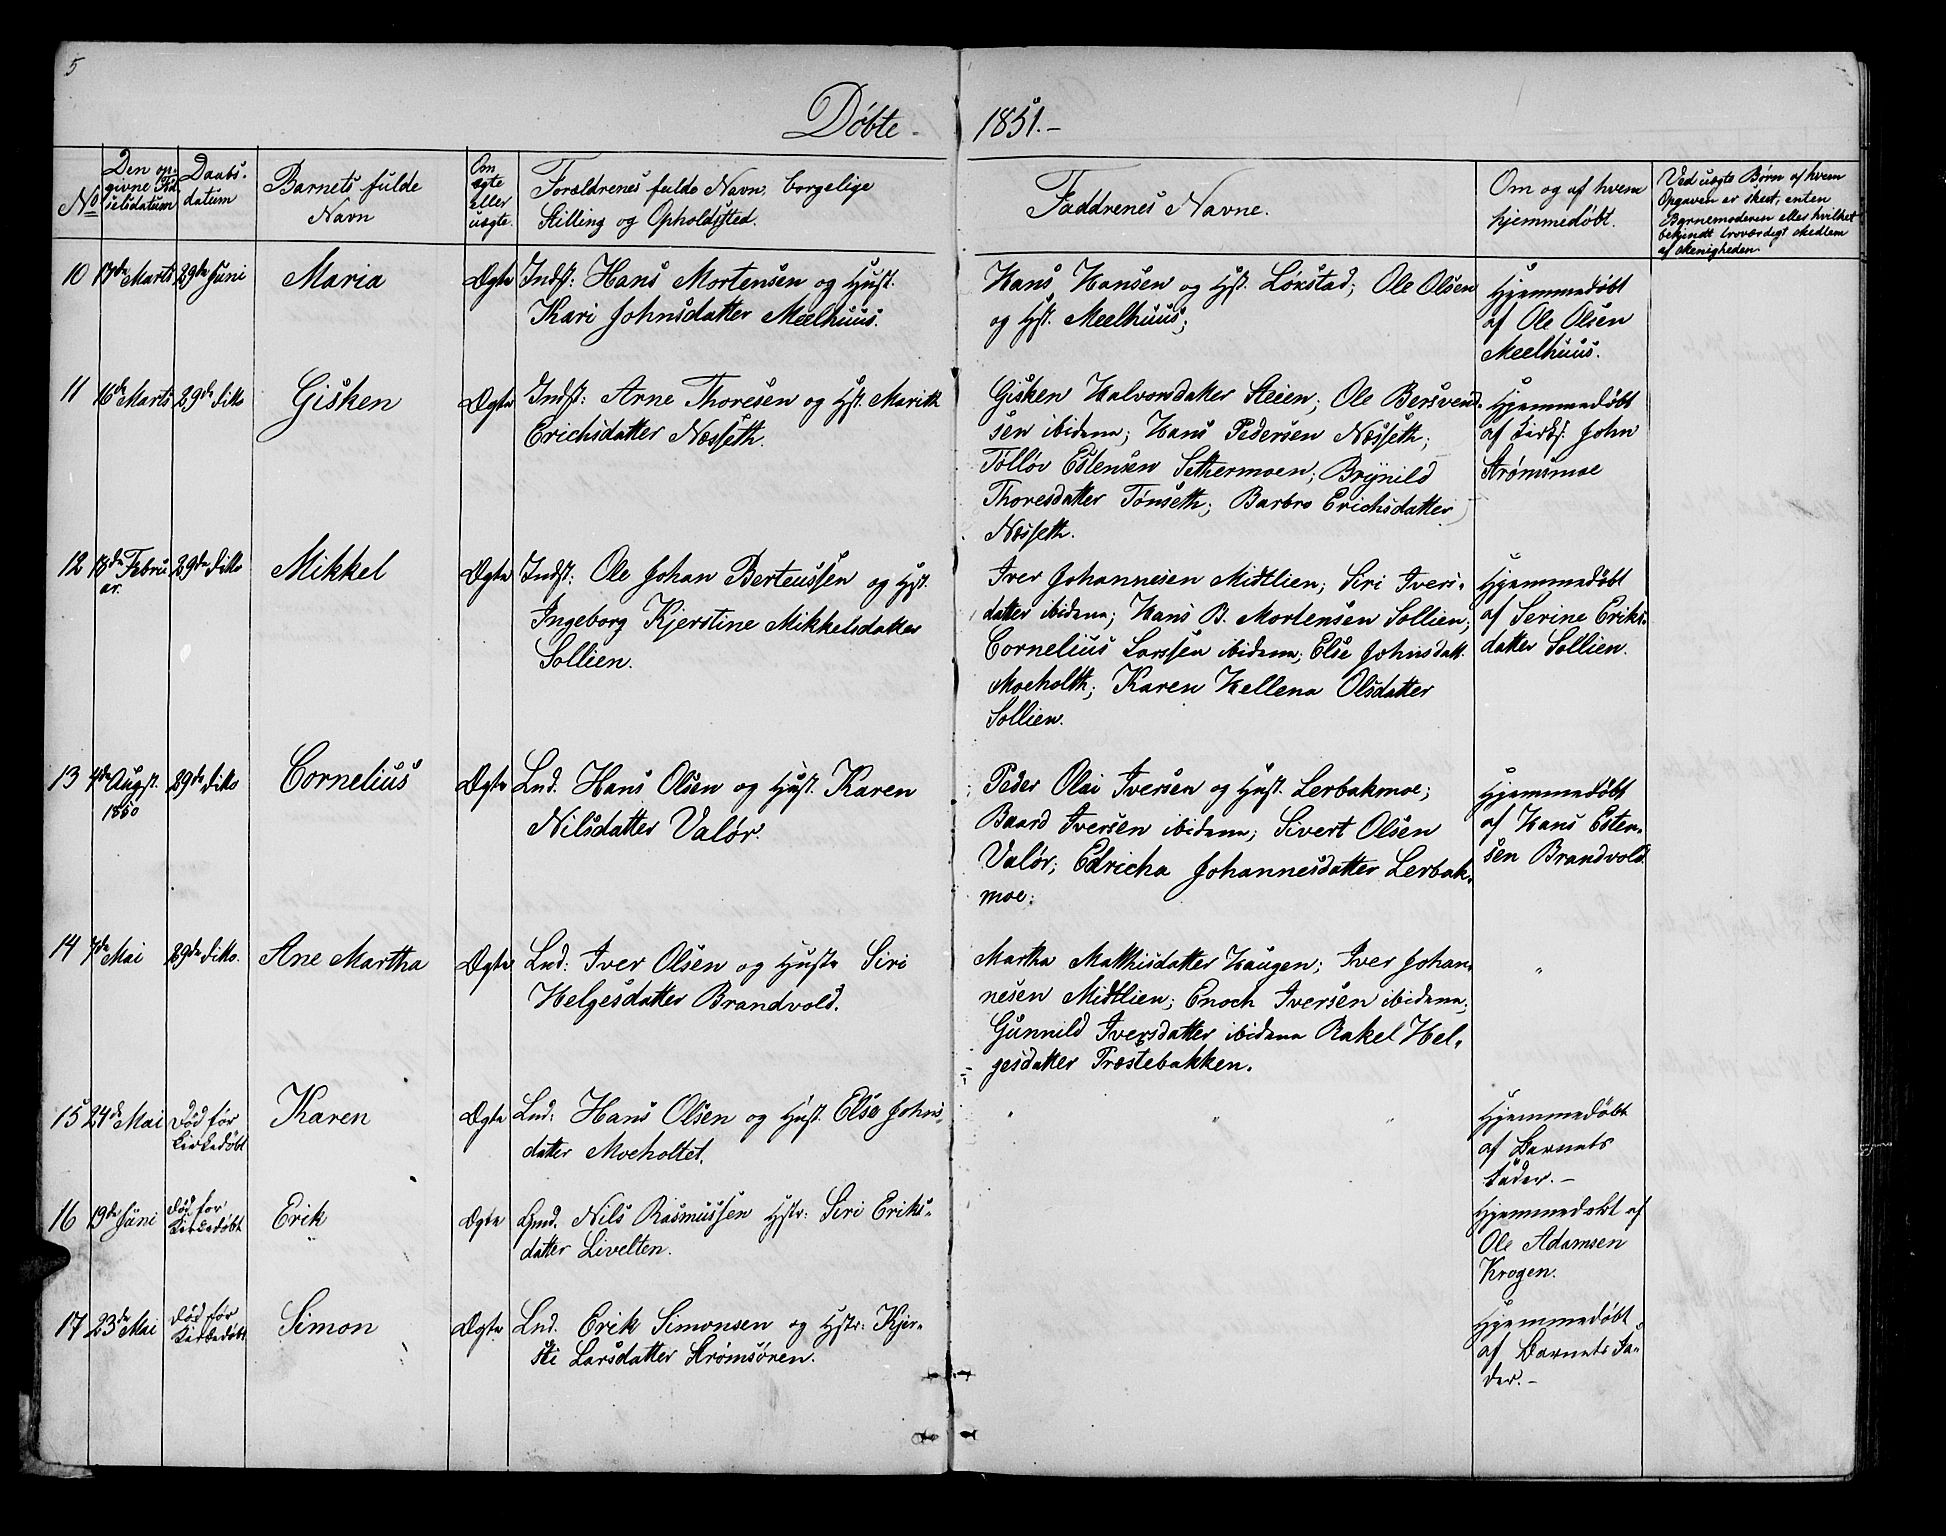 5
Døbte - 1851. -
No
Den op-
givne Fød
selsdatum
Daabs-
datum
Barnets fulde
Navn
Om
ægte
eller
uægte.
Forældrenes fulde Navn, borgelige
Stilling og Opholdssted.
Faddrenes Navne.
Om og af hvem
hjemmedøbt.
Ved uægte Børn af hvem
Opgaven er skeet, enten
Barnemoderen eller hvilket
bekjendt troværdigt Medlem
af Menigheden.
10 17de Marts 29de Juni Maria Ægte Indst: Hans Mortensen og Hust.
Kari Johnsdatter Meelhuus.
Hans Hansen og Hst. Løkstad; Ole Olsen
og Hst. Meelhuus;
Hjemmedøbt
af Ole Olsen
Meelhuus.
11 16de Marts 29de ditto Gisken Ægte Indst: Arne Thoresen og Hst. Maritk
Erichsdatter Næsseth.
Gisken Halvorsdatter Steien; Ole Bersvend-
sen ibidem; Hans Pedersen Næsseth;
Tolløv Estensen Sethermoen; Brynild
Thoresdatter Tønseth; Barbro Erichsdatter
Næsseth.
Hjemmedøbt
af Kirks. John
Strømsmoe
12 18de Febru
ar. 29de ditto Mikkel Ægte Indst: Ole Johan Berteussen og Hst.
Ingeborg Kjerstine Mikkelsdatter
Sollien.
Iver Johannesen Midtlien; Siri Ivers-
datter ibidem; Hans B. Mortensen Sollien;
Cornelius Larssen ibidem; Else Johnsdatt.
Moeholtk; Karen Hellena Olsdatter
Sollien.
Hjemmedøbt
af Serine Eriks-
datter Sollien.
13 4de Augst.
1850 29de ditto Cornelius Ægte Lnd. Hans Olsen og Hust. Karen
Nilsdatter Valør.
Peder Olai Iversen og Hust. Lerbakmoe;
Baard Iversen ibidem; Sivert Olsen
Valør; Edricha Johannesdatter Lerbak-
moe.
Hjemmedøbt
af Hans Esten-
sen Brandvold.
14 7de Mai 29de ditto. Ane Martha Ægte Lnd: Iver Olsen og Hustr Siri
Helgesdatter Brandvold.
Martha Matthisdatter Haugen; Iver Johan-
nesen Midtlien; Enoch Iversen ibidem;
Gunnild Iversdatter ibidem Rakel Hel-
gesdatter Præstebakken.
"
15 24de Mai Død før
Kirkedøbt Karen Ægte Lnd: Hans Olsen og Hust. Else Johns-
datter Moeholtet.
" " "
Hjemmedøbt
af Barnets
Fader. -
16 19de Juni Død før
Kirkedøbt Erik Ægte Gmd. Nils Rasmussen Hstr: Siri Eriks-
datter Livelten.
Hjemmedøbt af
Ole Adamsen
Krogen.
17 23de Mai Død før
Kirkedøbt Simon Ægte Lnd. Erik Simonsen og Hstr: Kjer-
sti Larsdatter Strømsøren.
Hjemmedøbt
af Barnets Fa-
der. -